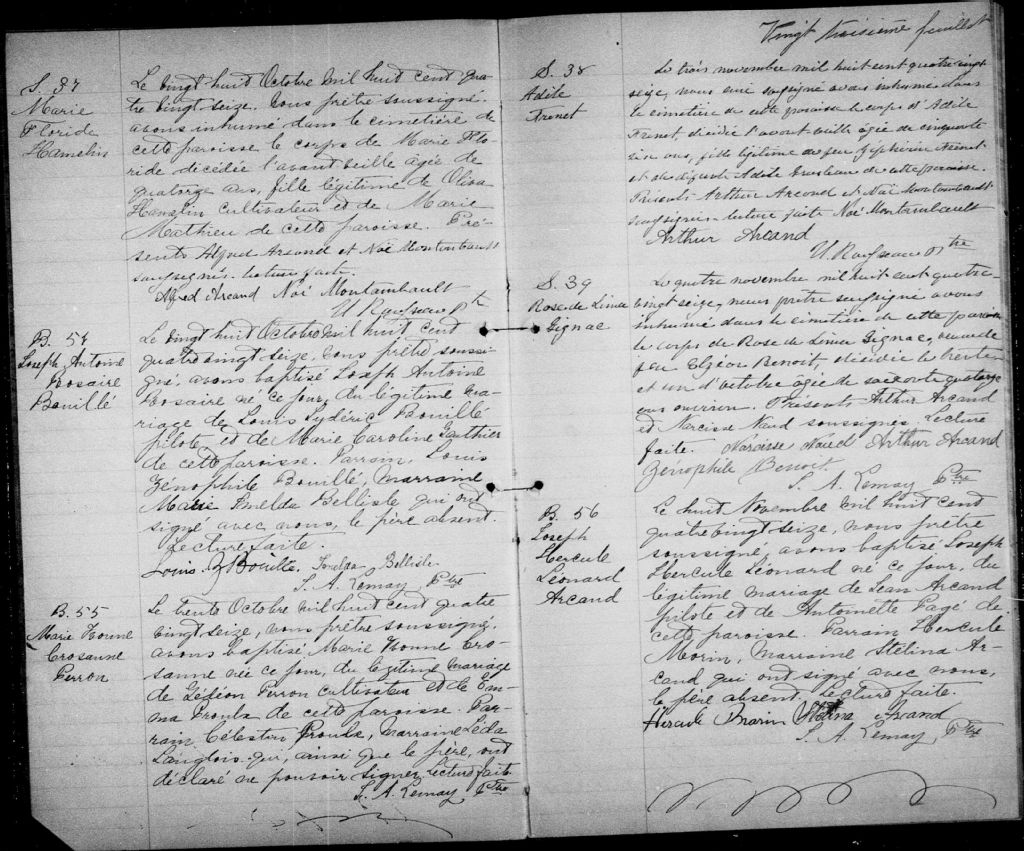 S. 37
Marie
Floride
Hamelin
Le vingt huit Octobre mil huit cent qua-
tre vingt seize. Nous prêtre soussigné.
avons inhumé dans le cimetière de
cette paroisse le corps de Marie Flo-
ride décédée l'avant veille âgée de
quatorze ans, fille légitime de Oliva
Hamelin cultivateur et de Marie
Mathieu de cette paroisse. Pré-
sents Alfred Arcand et Noé Montambault
soussignés. lecture faite.
Alfred Arcand Noé Montambault
U Rousseau Ptr
B. 54
Joseph Antoine
Rosaire
Bouillé
Le vingt huit Octobre mil huit cent
quatre vingt seize, nous prêtre soussi-
gné, avons baptisé Joseph Antoine
Rosaire né ce jour, du légitime ma-
riage de Louis Lydéric Bouillé
pilote et de Marie Caroline Gauthier
de cette paroisse. Parrain, Louis
Zénophile Bouillé, Marraine
Marie Imelda Bellisle qui ont
signé avec nous, le père absent.
Lecture faite.
Louis Z Bouillé. Imelda Bellisle
L. A. Lemay Ptre
B. 55
Marie Yvonne
Crosanne
Perron
Le trente Octobre mil huit cent quatre
vingt seize, nous prêtre soussigné,
avons baptisé Marie Yvonne Cro-
sanne née ce jour, du légitime mariage
de Gédéon Perron cultivateur et de Em-
ma Proulx de cette paroisse. Par-
rain Célestin Proulx, Marraine Léda
Langlois qui, ainsi que le père, ont
déclaré ne pouvoir signer, lecture faite.
L. A. Lemay Ptre
Vingt troisième feuillet
S. 38
Adèle
Frenet
Le trois novembre mil huit cent quatre vingt
seize, nous curé soussigné avons inhumé dans
le cimetière de cette paroisse le corps d'Adèle
Frenet, décédée l'avant veille âgée de cinquante
six ans, fille légitime de feu Zéphirin Frenet
et de défunte Adèle de cette paroisse.
Présents Arthur Arcand et Noé Montambault
soussignés lecture faite Noé Montambault
Arthur Arcand
U. Rousseau Ptre
S. 39
Rose de Lima
Gignac
Le quatre novembre mil huit cent quatre-
vingt seize, nous prêtre soussigné avons
inhumé dans le cimetière de cette paroisse
le corps de Rose de Lima Gignac, veuve de
feu Elzéar Benoit, décédée le trente
et un d'octobre âgée de soixante quatorze
ans environ. Présents Arthur Arcand
et Narcisse Naud soussignés. Lecture
faite. Narcisse Naud Arthur Arcand
Zénophile Benoit
L. A. Lemay Ptre
B. 56
Joseph
Hercule
Léonard
Arcand
Le huit Novembre mil huit cent
quatre vingt seize, nous prêtre
soussigné, avons baptisé Joseph
Hercule Léonard né ce jour, du
légitime mariage de Jean Arcand
pilote et de Antoinette Pagé de
cette paroisse. Parrain Hercule
Morin, Marraine Stelina Ar-
cand qui ont signé avec nous,
le père absent, lecture faite.
Hercule Morin Stelina Arcand
L. A. Lemay, Ptre